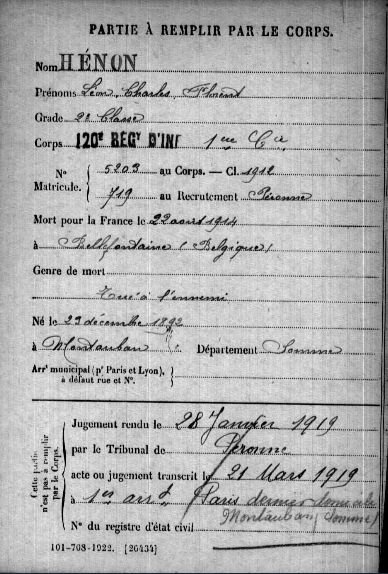 PARTIE À REMPLIR PAR LE CORPS.
Nom HÉNON
Prénoms Léon, Charles, Florent
Grade 2e Classe
Corps 120e REGt D'INF 1ère Cie
N° Matricule. { 5203 au Corps. — Cl. 1912
719 au Recrutement Péronne
Mort pour la France le 22 août 1914
à Bellefontaine (Belgique)
Genre de mort
Tué à l'ennemi
Né le 23 décembre 1892
à Montauban Département Somme
Arrt municipal (pr Paris et Lyon), à défaut rue et N°. }
Cette partie n'est pas à remplir par le Corps.
Jugement rendu le 28 Janvier 1919
par le Tribunal de Péronne
acte ou jugement transcrit le 21 Mars 1919
à 1er arrt Paris dernier domicile
Montauban (Somme)
N° du registre d'état civil
101-708-1922. [26434]